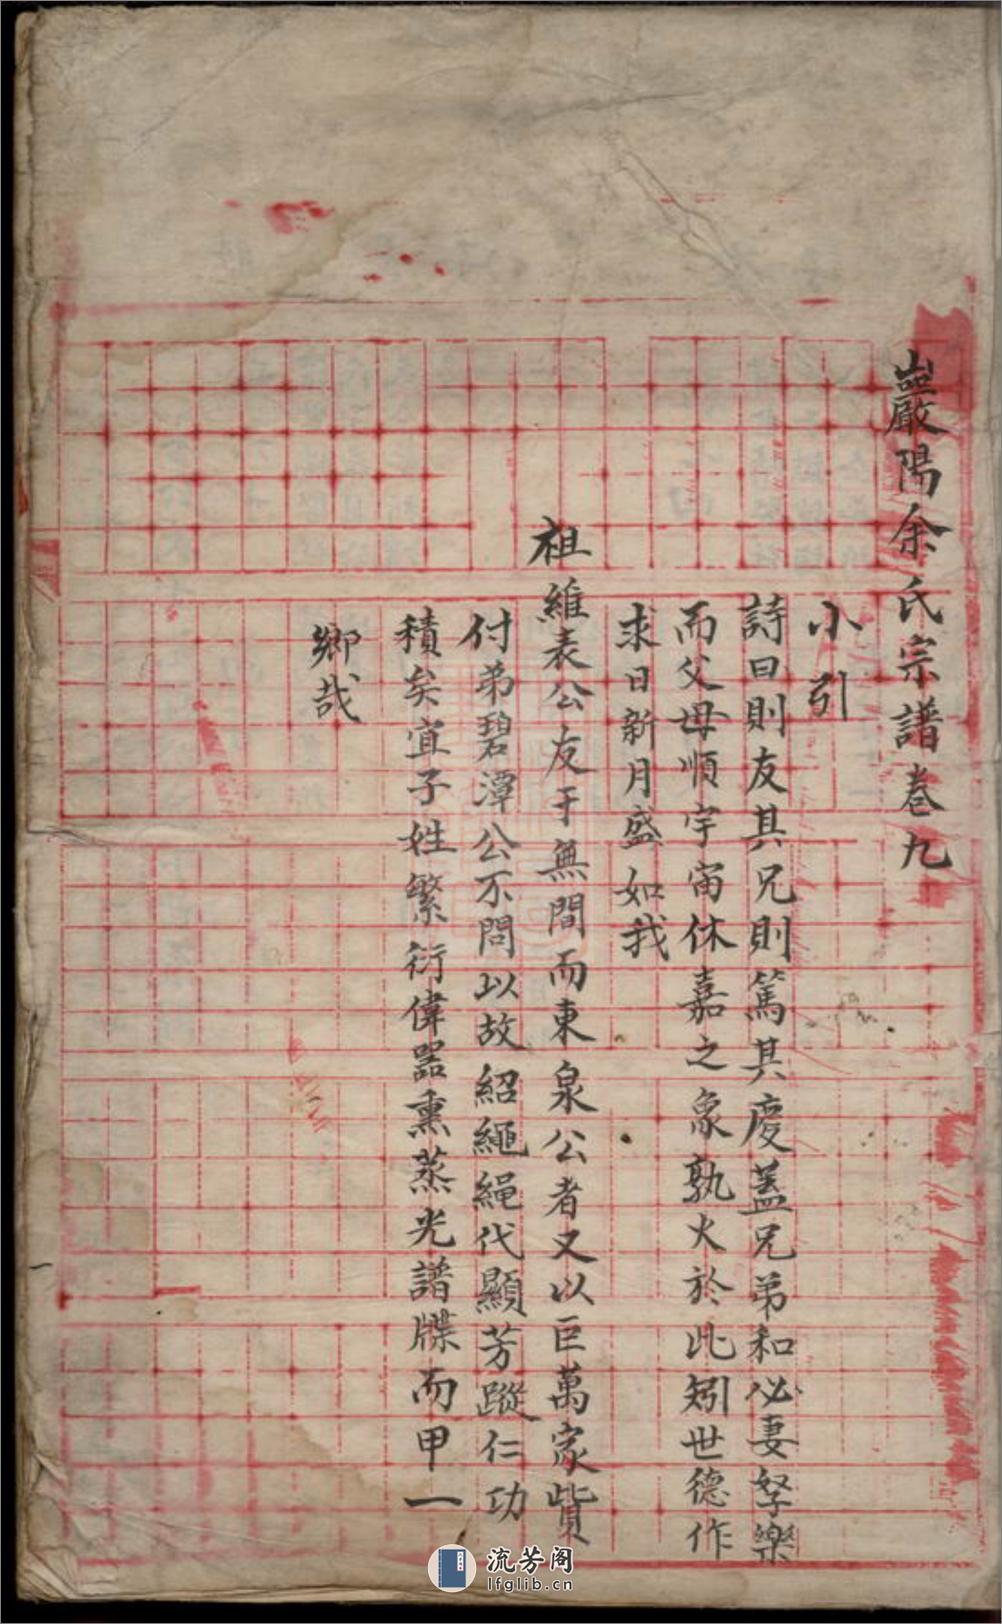 巖陽余氏宗譜卷九
小引
詩曰則友其兄則篤其慶蓋兄弟和必妻孥樂
而父母順宇甯休嘉之象孰火於此矧世德作
求日新月盛如我
祖維表公友于無間而東泉公者又以巨萬家貲
付弟碧潭公不問以故紹繩繩代顯芳蹤仁功
積矣宜子姓繁衍偉器熏蒸光譜牒而甲一
鄉哉
一
流芳阁
lfglib.cn